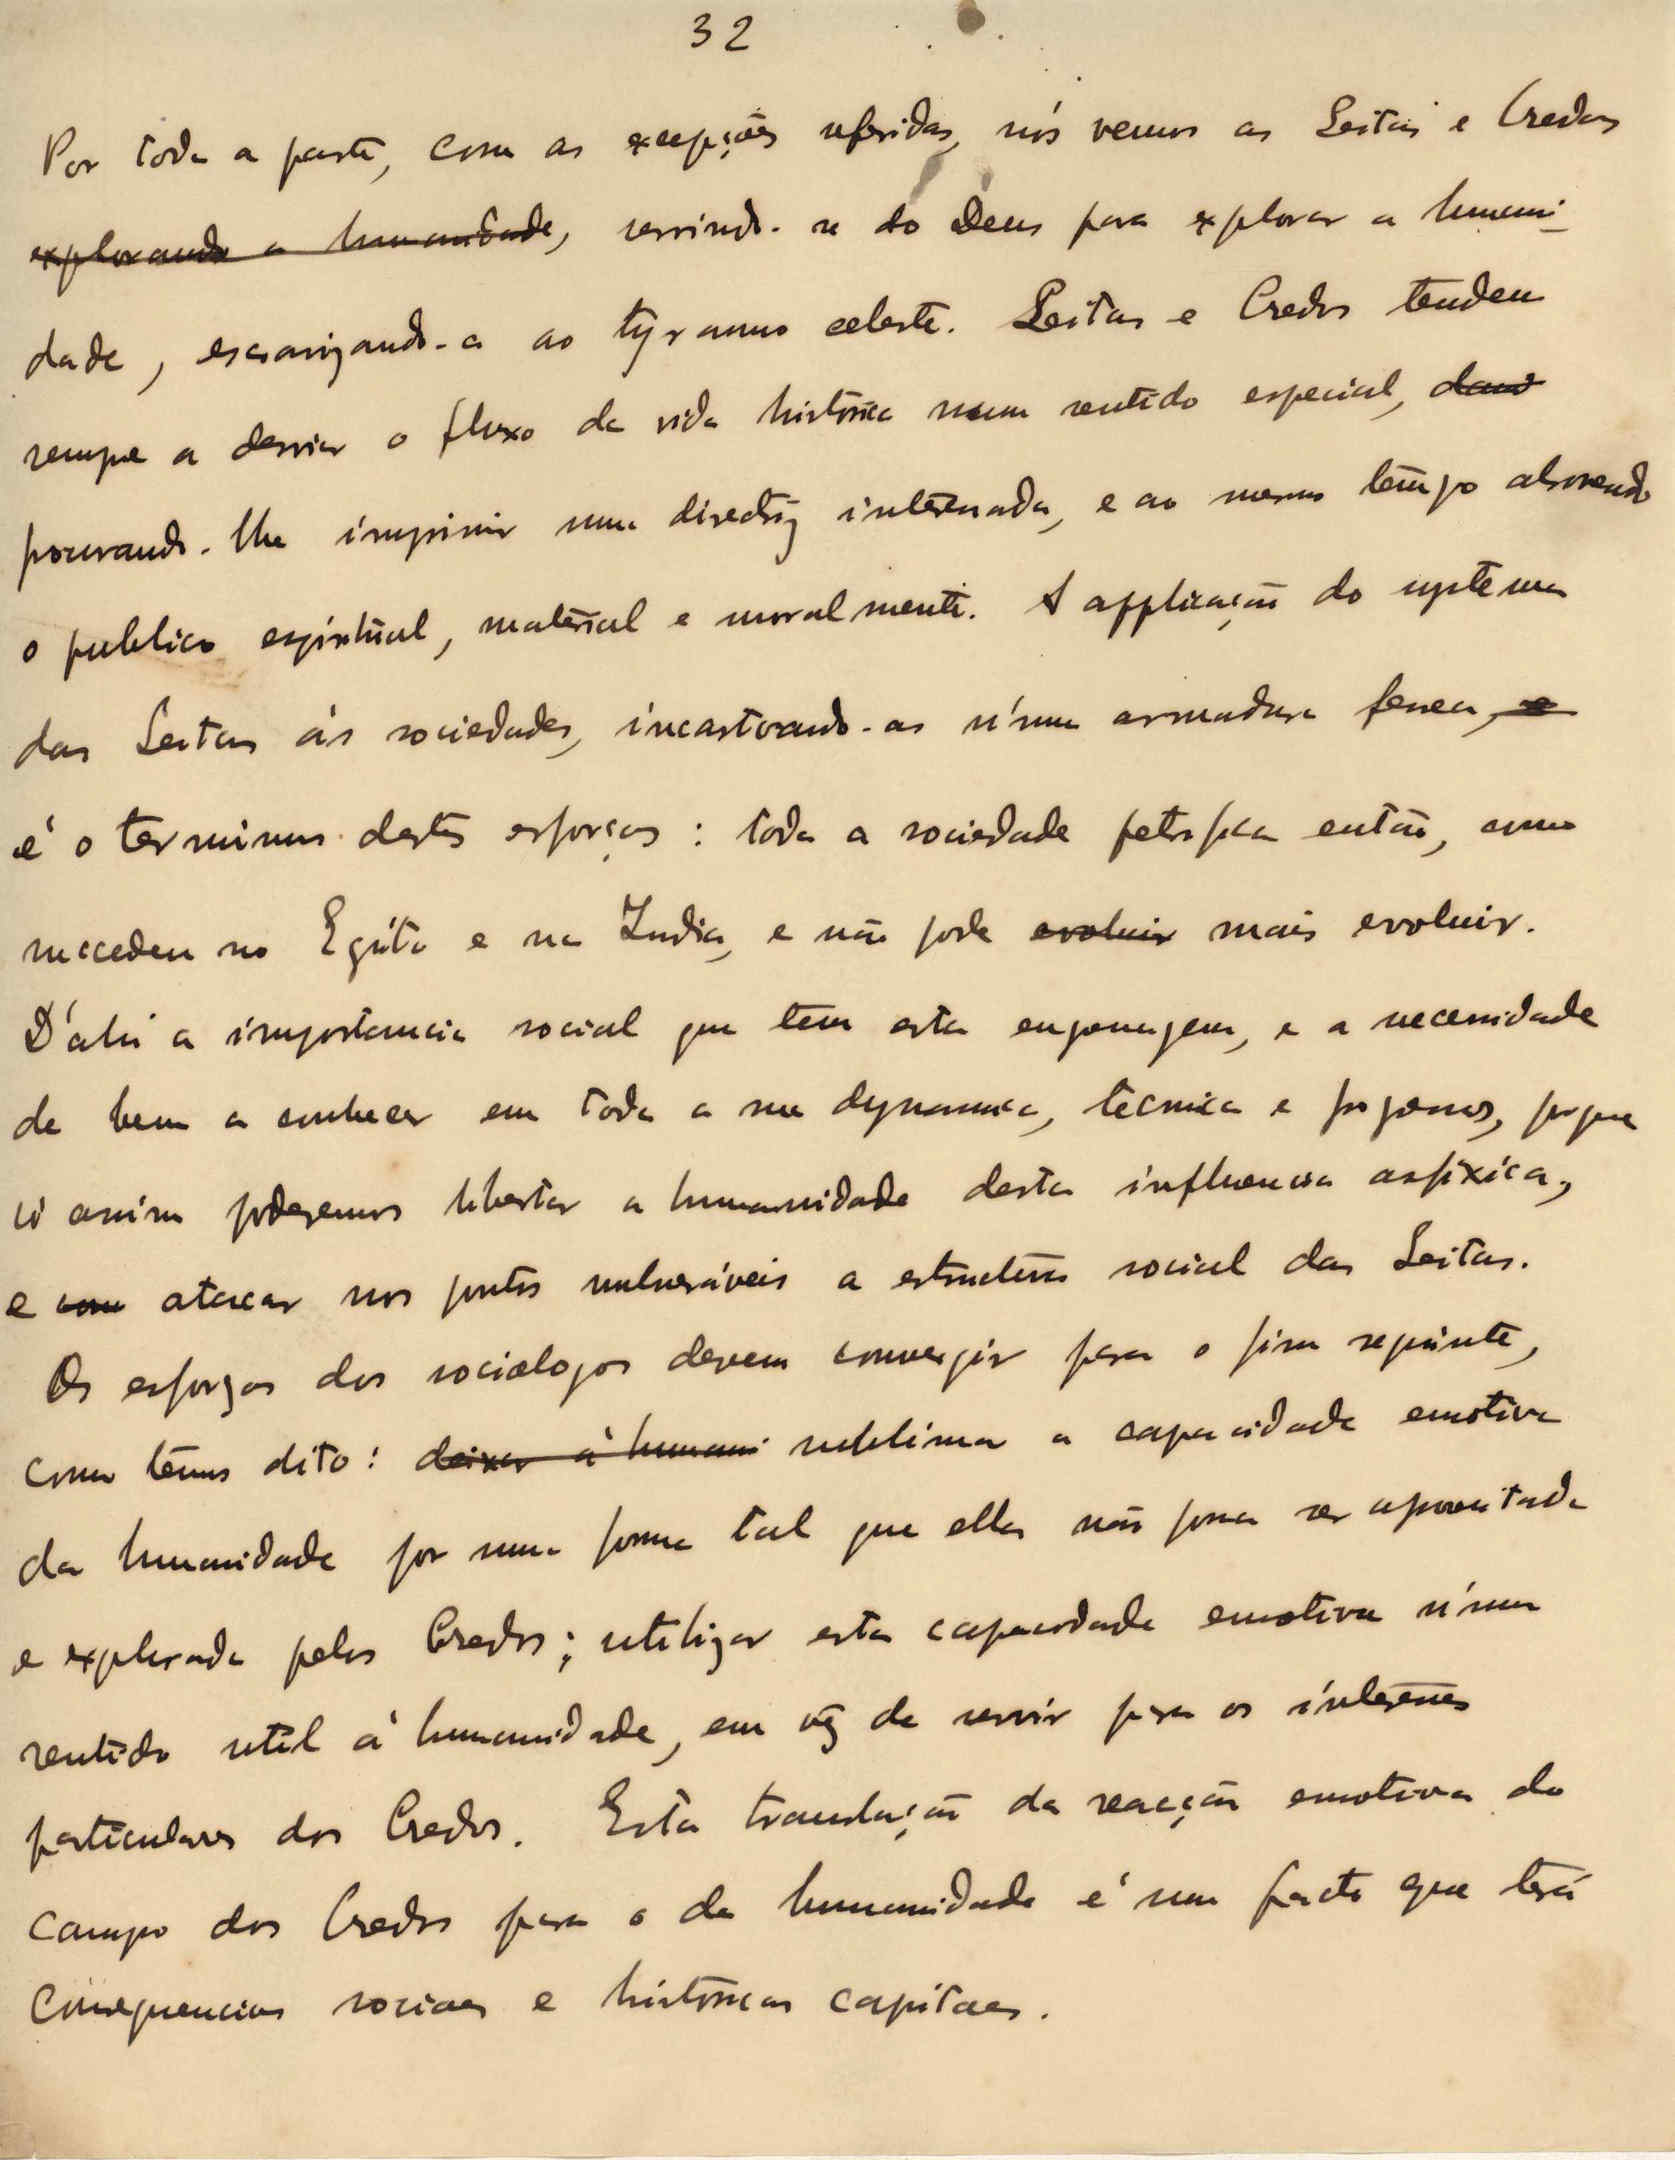 32
Por toda a parte, com as excepções referidas, nós vemos as Seitas e Credos
explorando a humanidade, servindo-se do Deus para explorar a humani-
dade, escravizando-a ao tyranno celeste. Seitas e Credos tendem
sempre a desviar o fluxo da vida histórica num sentido especial, dand
procurando-lhe imprimir uma directriz interessada, e ao mesmo tempo absorvendo
o publico espiritual, material e moralmente. A applicação do systema
das Seitas ás sociedades, incastoando-as n'uma armadura ferrea, e
é o terminus destes esforços: toda a sociedade petrifica então, como
succedeu no Egito e na India, e não pode evoluir mais evoluir.
D'ahi a importancia social que tem esta engrenagem, e a necessidade
de bem a conhecer em toda a sua dynamica, technica e processos, porque
só assim poderemos libertar a humanidade desta influencia asfixica,
e com atacar nos pontos vulneráveis a estructura social das Seitas.
Os esforços dos sociologos devem convergir para o fim seguinte,
como temos dito: deixar á humani sublimar a capacidade emotiva
da humanidade por uma forma tal que ella não possa ser aproveitada
e explorada pelos Credos; utilizar esta capacidade emotiva n'um
sentido util á humanidade, em vez de servir para os interesses
particulares dos Credos. Esta translação da reacção emotiva do
campo dos Credos para o da humanidade é um facto que terá
consequencias sociaes e históricas capitaes.